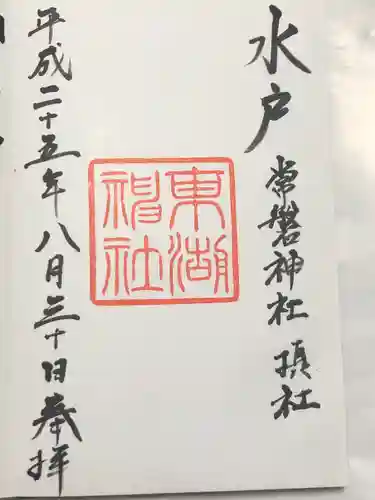 水戸
常磐神社 摂社
東湖
神社
平成二十五年八月三十日奉拝